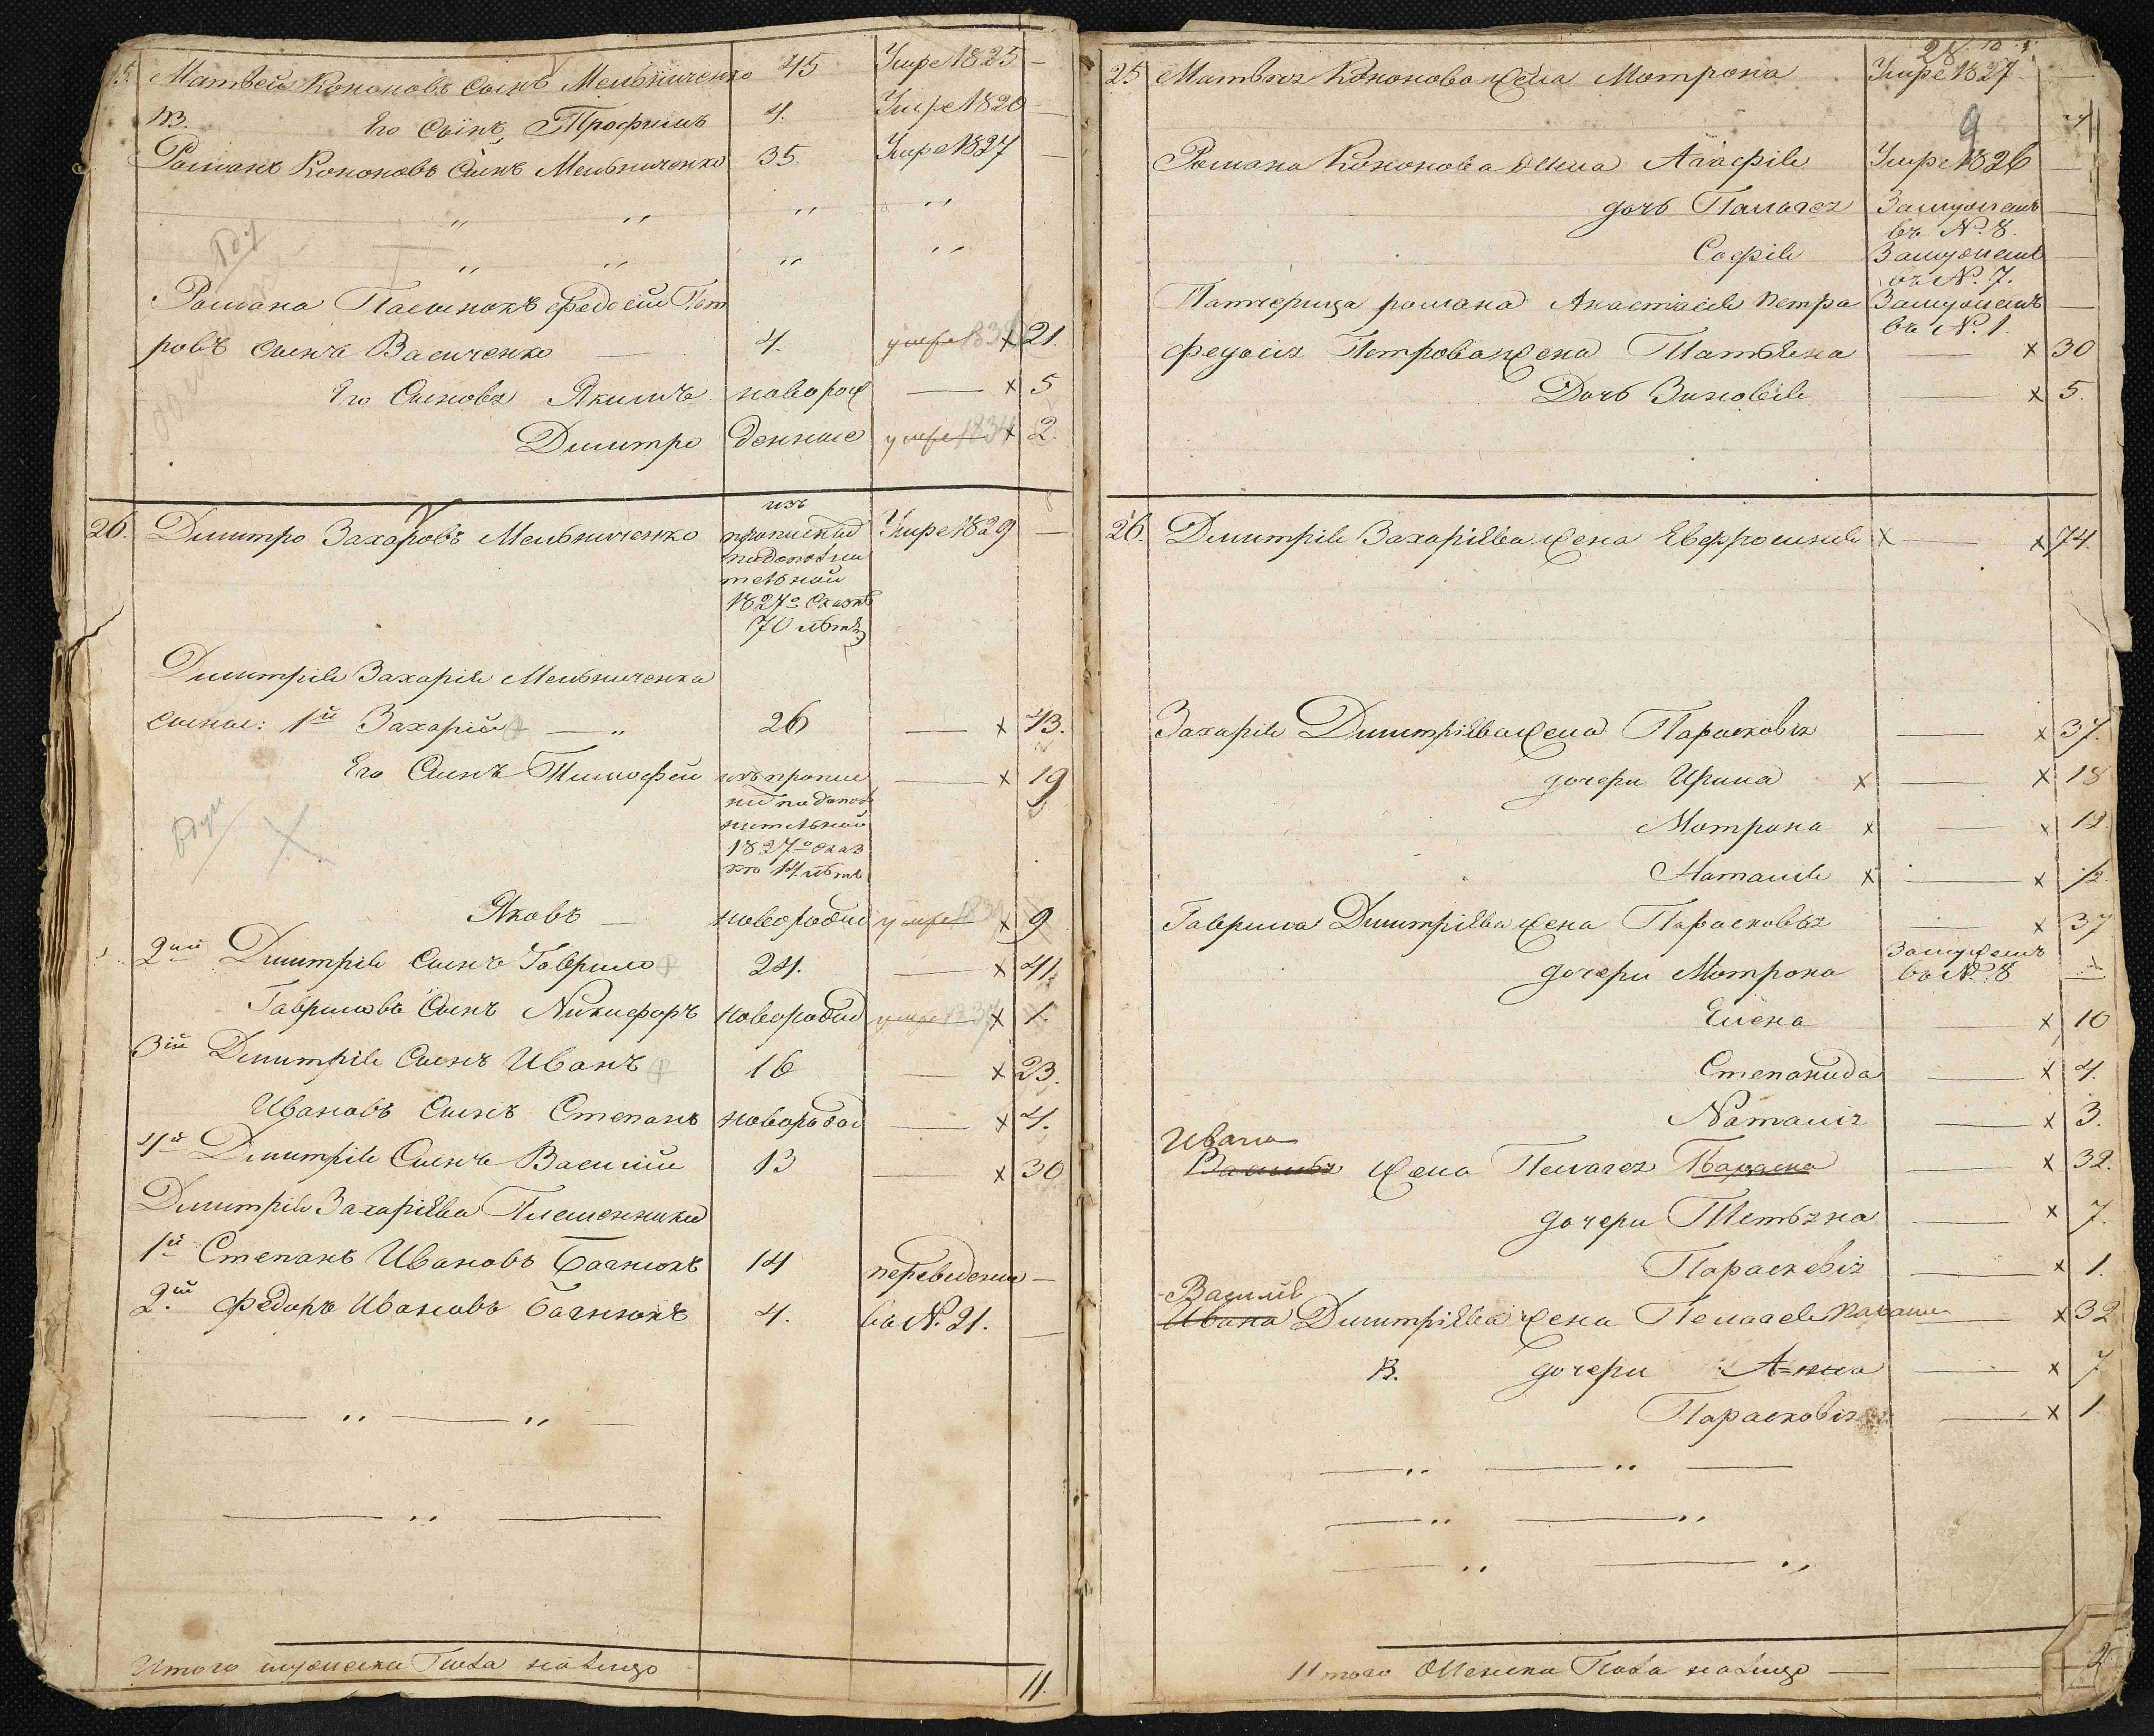 25. Матвей Кононовъ Сынъ Мельниченко 45 Умре 1825 —
Его Сынъ Трофимъ 4. Умре 1820 —
Романъ Кононовъ Сынъ Мельниченко 35. Умре 1827 —
Романа Пасынокъ Федосiй Пет
ровъ Сынъ Васиченко — 4. умре 183 х 21.
Его Сыновя Якимъ новорож — х 5
Дмитро денные умре 1834 х 2.
изъ
26. Дмитро Захаровъ Мельниченко прописной Умре 1829 —
подополни
тельной
1827го Сказкѣ
70 лѣтъ
Дмитрія Захарія Мельниченка
сыны: 1й Захарій — 26 — х 43.
Его Сынъ Тимофей изъ пропис — х 19
ной подопол
нительной
1827го сказ
кѣ 14 лѣтъ
Яковъ — новорожд умре 183 х 9
2ий Дмитрія Сынъ Гаврило 24. — х 41.
Гавриловъ Сынъ Никифоръ новорожд умре 1837 х 1.
3ій Дмитрія Сынъ Иванъ 16 — х 23.
Ивановъ Сынъ Степанъ новорожд — х 4.
4й Дмитрія Сынъ Василій 13 — х 30
Дмитрія Захаріява Племенники
1й Степанъ Ивановъ Багнюкъ 14 переведены —
2ий Федоръ Ивановъ Багнюкъ 4. въ №. 21. —
Итого мужеска Пола налицо 11.
28.
9
25 Матвѣя Кононова жена Мотрона Умре 1827 —
Романа Кононова жена Агафія Умре 1826 —
дочь Палагея Замужемъ —
въ №. 8.
Софія Замужемъ —
въ №. 7.
Патчерица романа Анастасія петра Замужемъ —
въ №. 1.
Федосія Петрова жена Татьяна — х 30
Дочь Зиновія — х 5.
26. Дмитрія Захаріява жена Евфросинія х — х 74.
Захарія Дмитріява жена Парасковія — х 37.
дочери Ирина х — х 18
Мотрона х — х 12
Наталія х — х 12
Гаврила Дмитріява жена Парасковья — х 37
дочери Мотрона Замужемъ
въ №. 8 —
Елена — х 10
Степанида — х 4.
Наталія — х 3.
Ивана
Василія жена Пелагея — х 32.
дочери Тетьяна — х 7.
Параскевія — х 1.
Василія
Ивана Дмитріява жена Пелагея — х 32
дочери Анна — х 7
Парасковія — х 1.
Итого Женска Пола налицо —